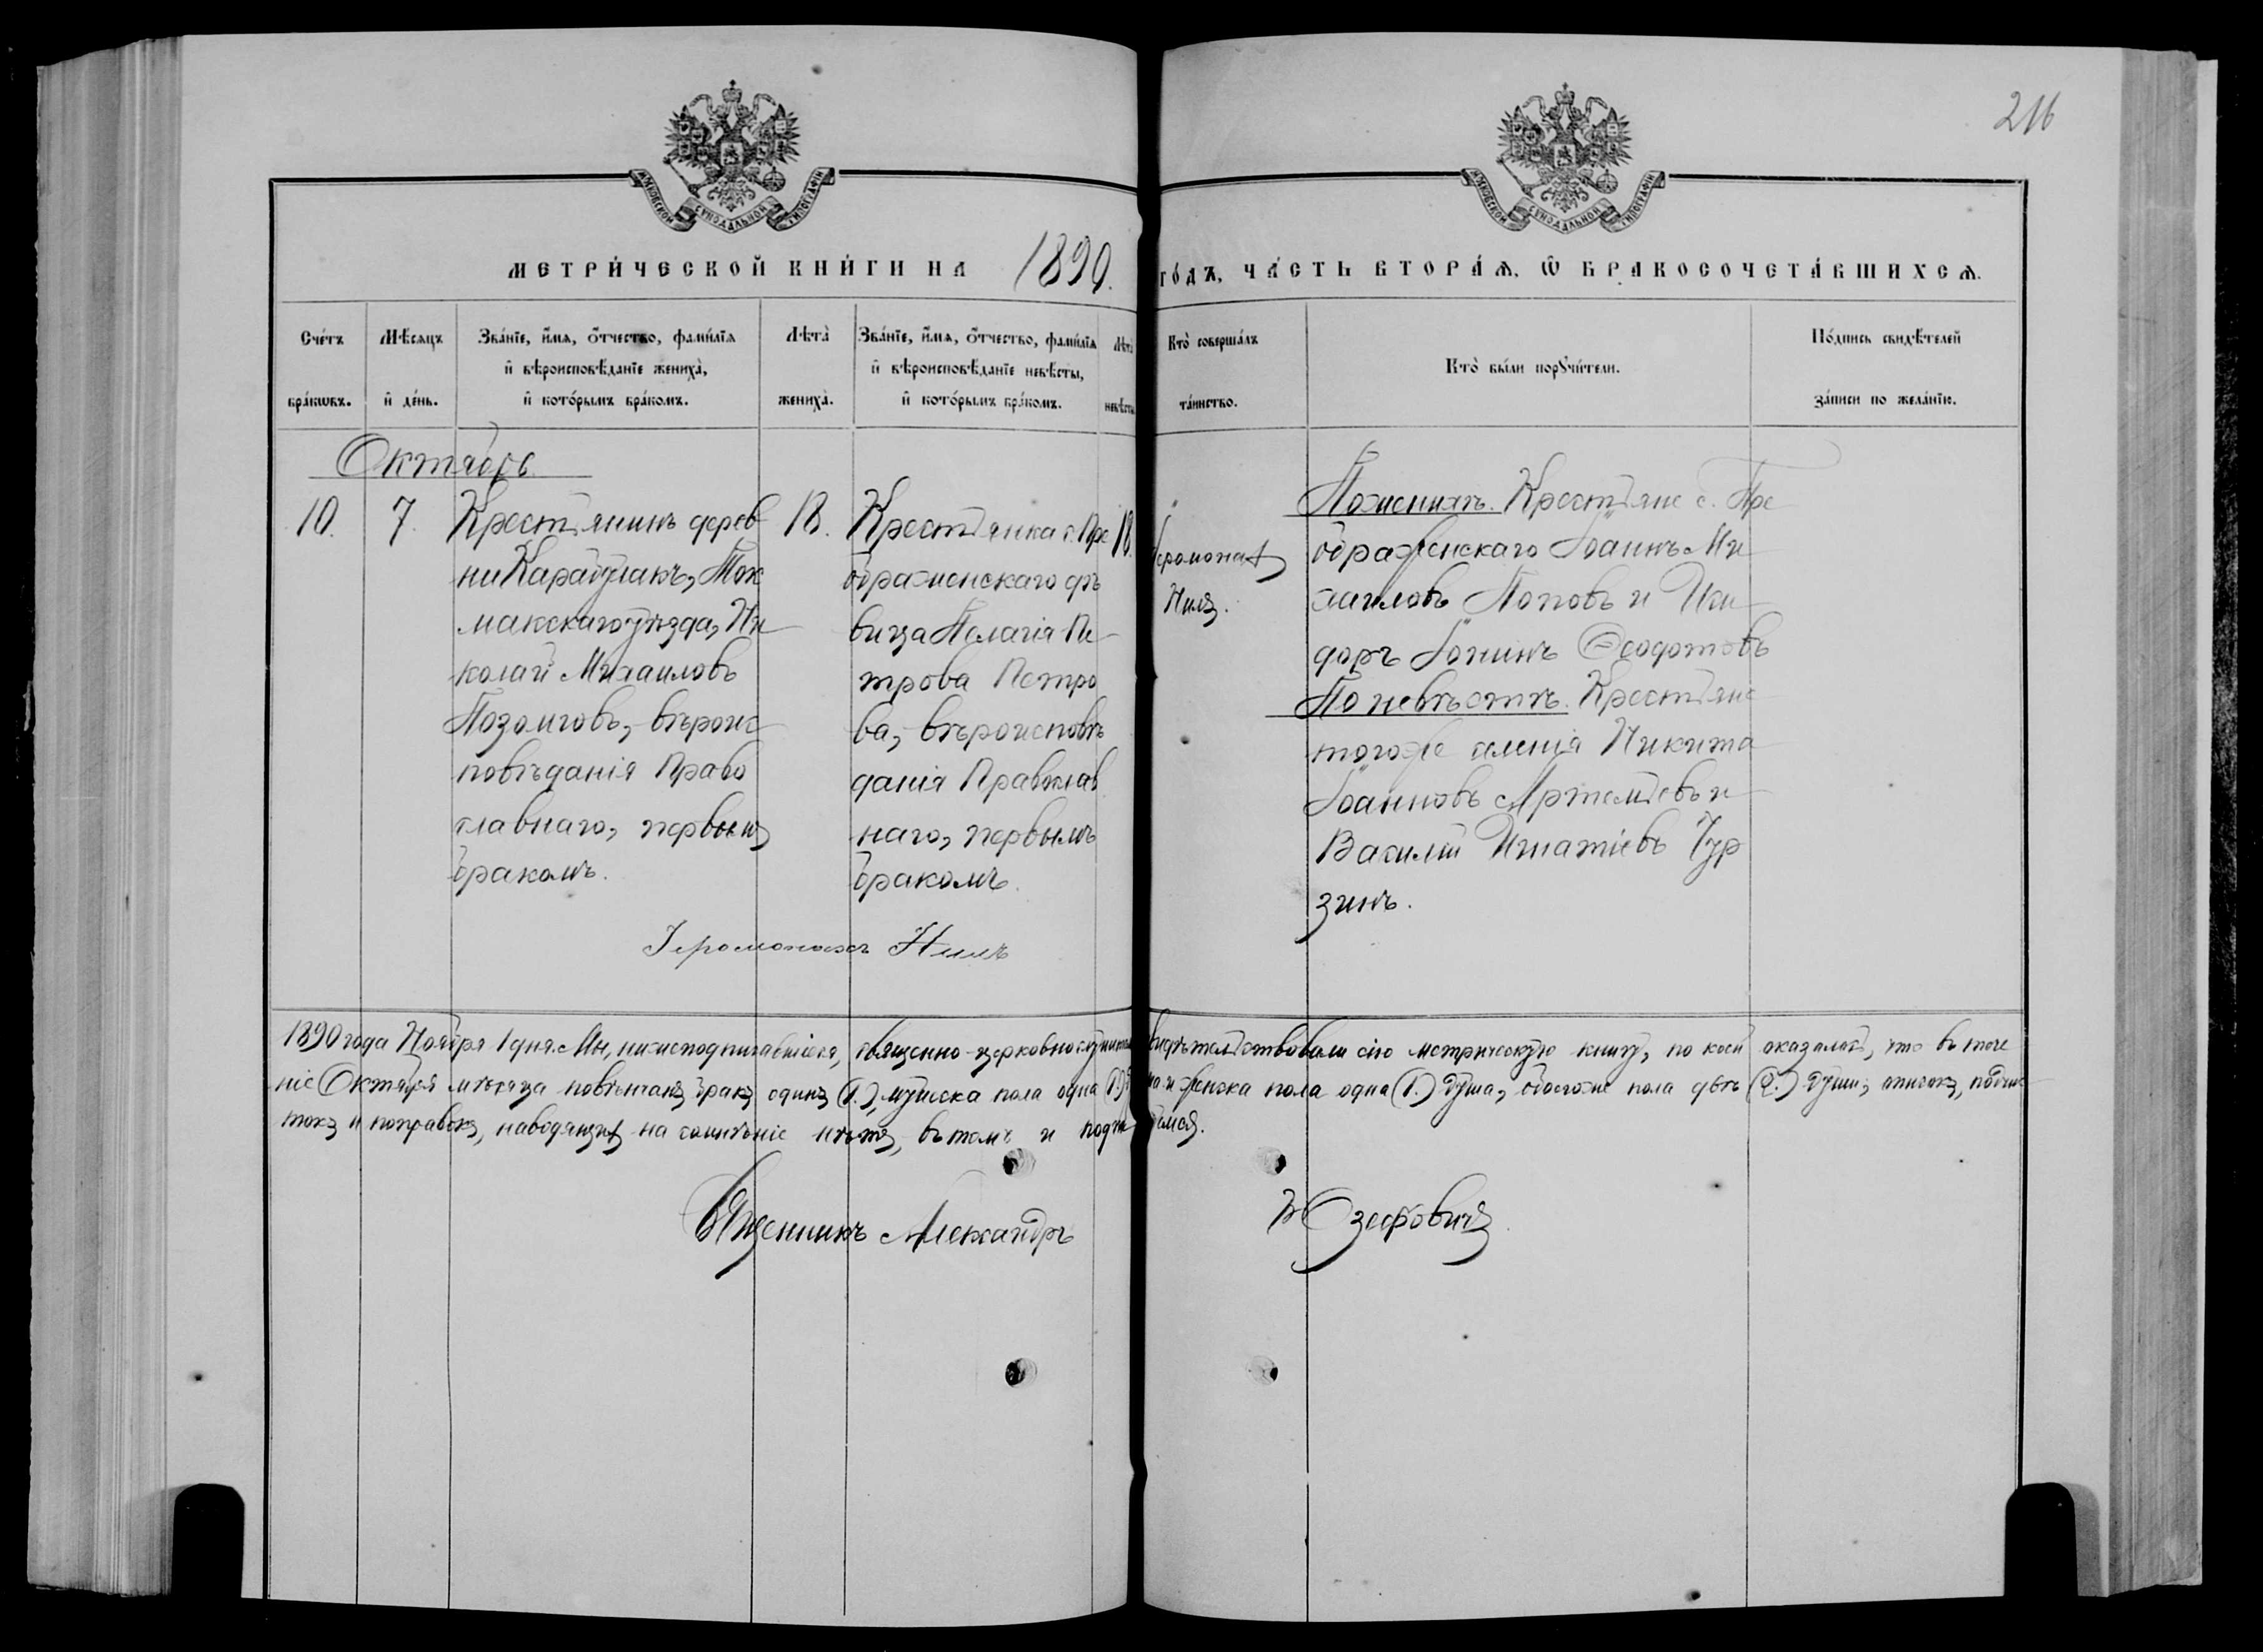 216
МОСКОВСКОЙ СѴНОДАЛЬНОЙ ТИПОГРАФІИ
МОСКОВСКОЙ СѴНОДАЛЬНОЙ ТИПОГРАФІИ
МЕТРИ́ЧЕСКОЙ КНИ́ГИ НА 1890. ГО́ДЪ, ЧА́СТЬ ВТОРА́Ѧ, Ѡ҆ БРАКОСОЧЕТА́ВШИХСѦ.
Сче́тъ бра́кѡвъ.
Мѣ́сѧцъ и҆ де́нь.
Зва́нїе, и҆́мѧ, ѻ҆́тчество, фами́лїѧ
и҆ вѣроисповѣ́данїе жениха̀,
и҆ кото́рымъ бра́комъ.
Лѣта̀ жениха̀.
Зва́нїе, и҆́мѧ, ѻ҆́тчество, фами́лїѧ
и҆ вѣроисповѣ́данїе невѣ́сты,
и҆ кото́рымъ бра́комъ.
Лѣта̀ невѣ́сты
Кто̀ соверша́лъ та́инство.
Кто̀ бы́ли порꙋчи́тели.
По́дпись свидѣ́телей
за́писи по жела́нїю.
Октябрь
10.
7.
Крестьянинъ дерев
ни Карабулакъ, Ток
макскаго уѣзда, Ни
колай Михаиловъ
Позоиговъ, вѣроис
повѣданія Право
славнаго, первымъ
бракомъ.
18.
Крестьянка с. Пре
ображенскаго дѣ
вица Пелагія Пе
трова Петро
ва, вѣроисповѣ
данія Православ
наго, первымъ
бракомъ.
18.
Іеромонахъ
Нилъ.
По женихѣ. Крестьяне с. Пре
ображенскаго Іоаннъ Ми
хаиловъ Поповъ и Иси
доръ Іонинъ Ѳеодотовъ
По невѣстѣ. Крестьяне
тогоже селенія Никита
Іоанновъ Артемьевъ и
Василій Игнатіевъ Тур
зинъ.
Іеромонахъ Нилъ
1890 года Ноября 1 дня. Мы, нижеподписавшіеся, священно-церковнослужители свидѣтельствовали сію метрическую книгу, по коей оказалось, что въ тече
ніе Октября мѣсяца повѣнчанъ бракъ одинъ (1.), мужеска пола одна (1.) женска пола одна (1.) душа, обоегоже пола двѣ (2.) души, описокъ, подчис
токъ и поправокъ, наводящихъ на сомнѣніе нѣтъ, въ томъ и подписуемся.
Священникъ Александръ Юзефовичъ.